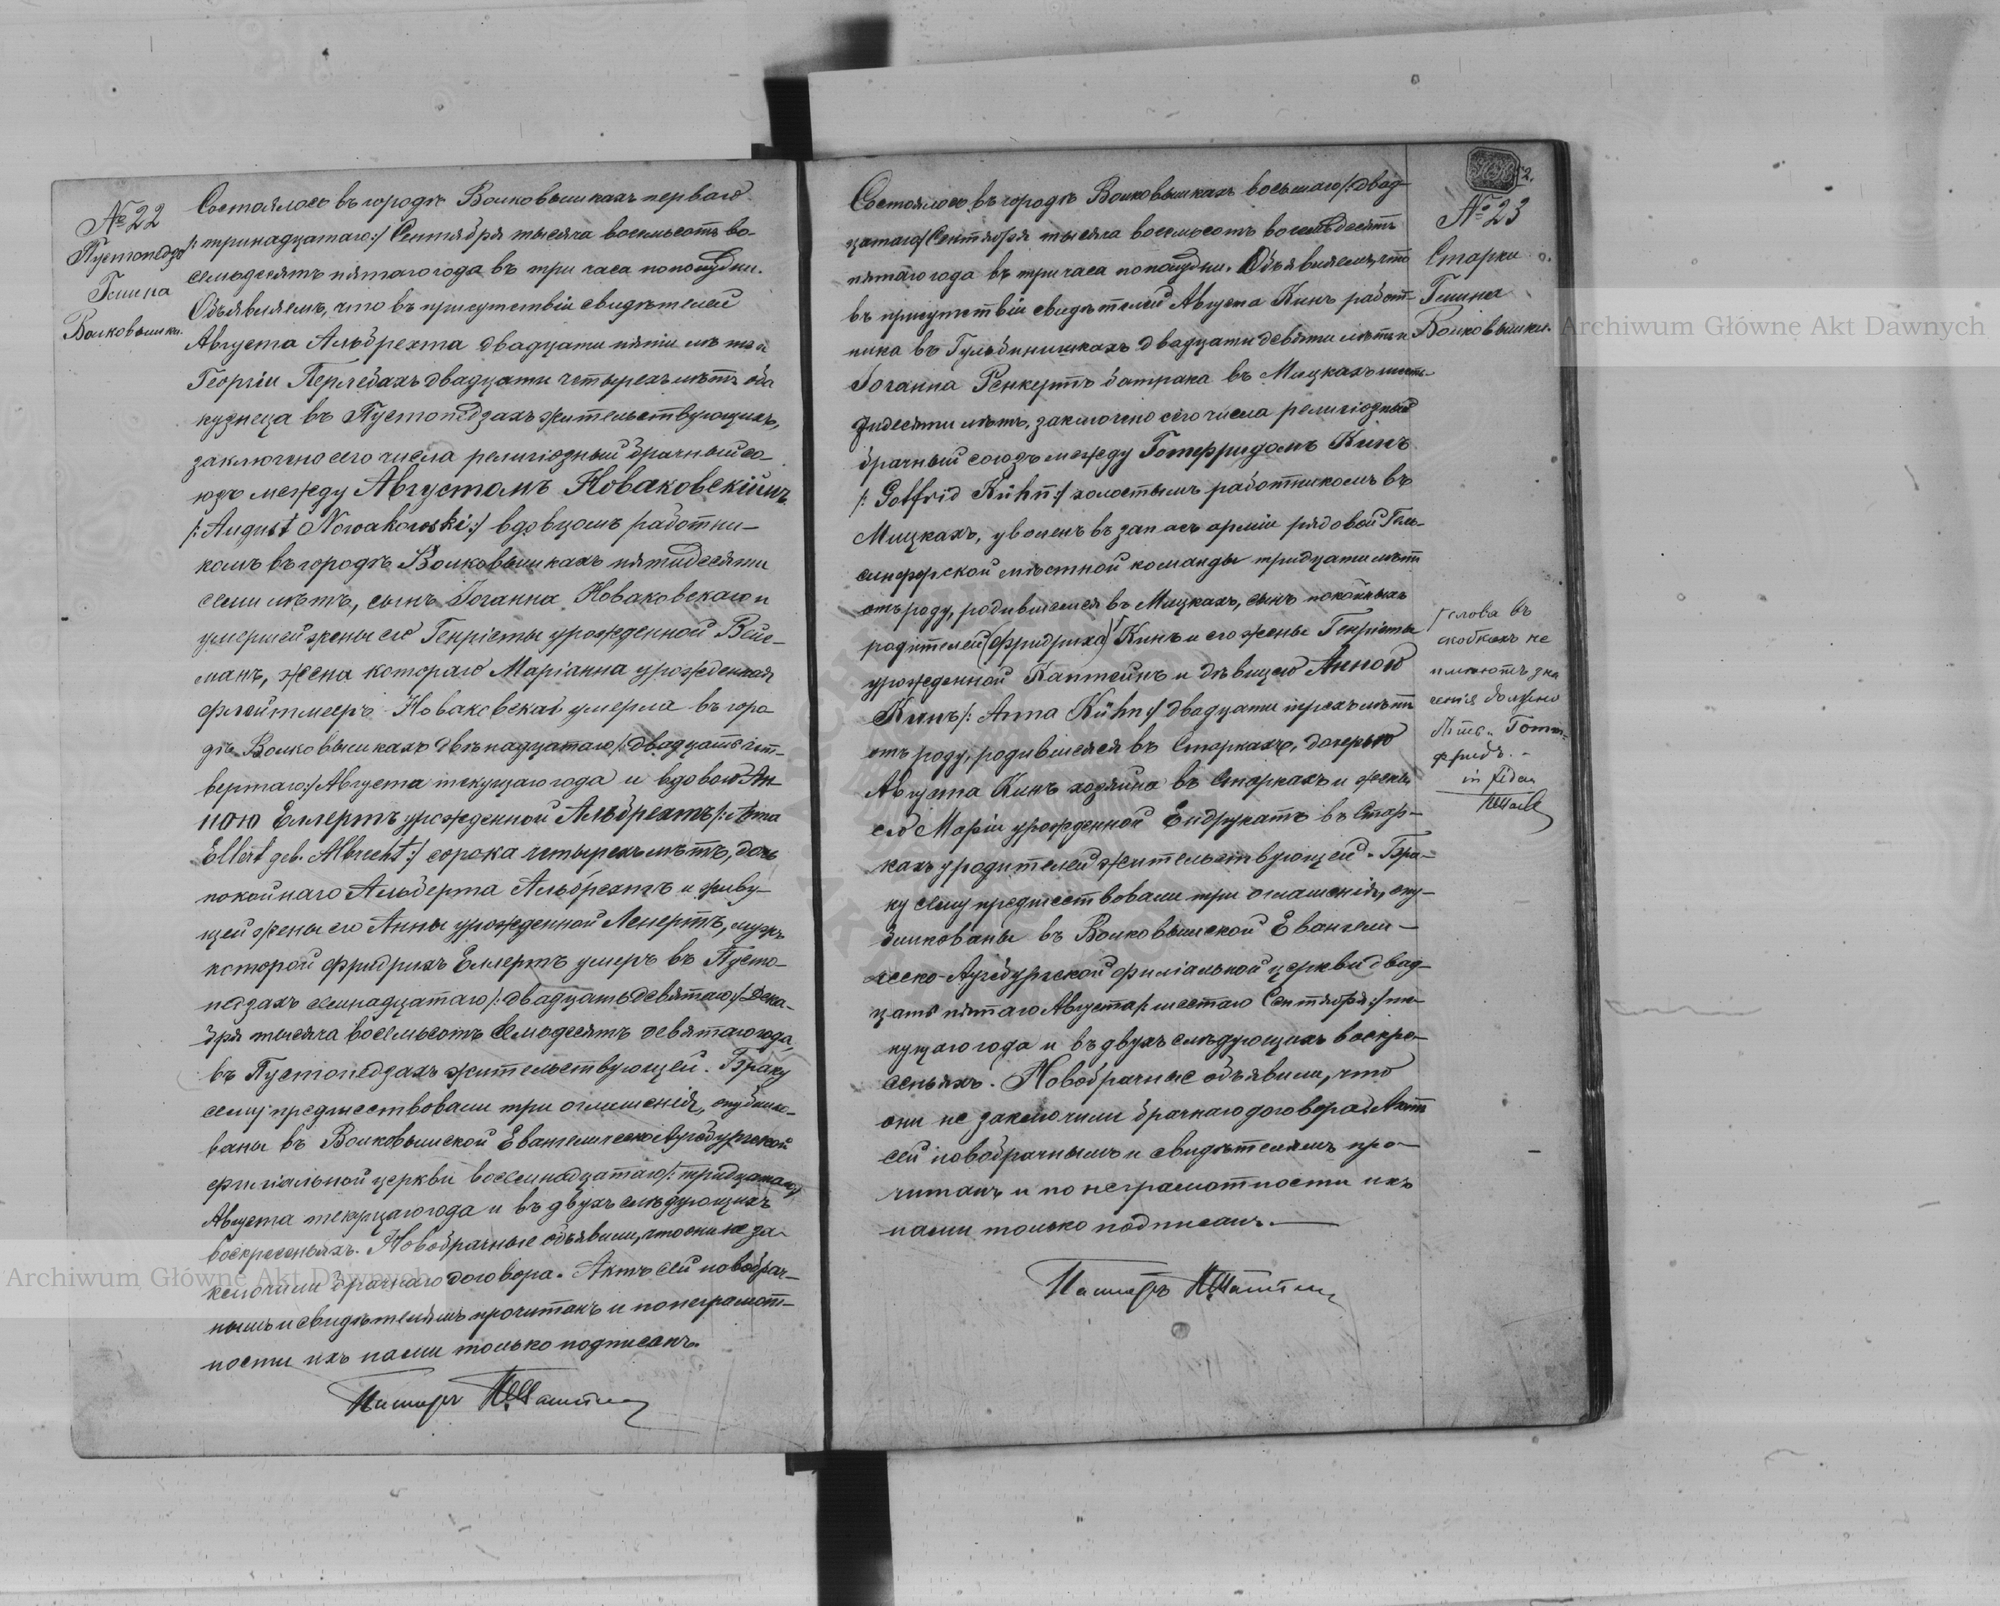 № 22
Пустопедзе
Гмина
Волковышки.
Состоялось въ городѣ Волковышкахъ перваго
/: тринадцатаго :/ Сентября тысяча восемьсотъ во-
семьдесятъ пятаго года въ три часа пополудни.
Объявляемъ, что въ присутствіи свидѣтелей
Августа Альбрехта двадцати пяти лѣтъ и
Георгія Перлебахъ двадцати четырехъ лѣтъ оба
кузнеца въ Пустопедзахъ жительствующихъ,
заключено сего числа религіозный брачный со-
юзъ между Августомъ Новаковскимъ
/: August Nowakowski :/ вдовцомъ работни-
комъ въ городѣ Волковышкахъ пятидесяти
семи лѣтъ, сынъ Іоганна Новаковскаго и
умершей жены его Генріеты урожденной Вейс-
манъ, жена котораго Маріанна урожденная
Флейтмееръ Новаковская умерла въ горо
дѣ Волковышкахъ двѣнадцатаго /: двадцать чет-
вертаго :/ Августа текущаго года и вдовою Ан-
ною Еллертъ урожденной Альбрехтъ /: Anna
Ellert geb. Albrecht :/ сорока четырехъ лѣтъ, дочь
покойнаго Альберта Альбрехтъ и живу-
щей жены его Анны урожденной Ленертъ, мужъ
которой Фридрихъ Еллертъ умеръ въ Пусто-
педзахъ семнадцатаго /: двадцать девятаго :/ Дека-
бря тысяча восемьсотъ семьдесятъ девятаго года,
въ Пустопедзахъ жительствующей. Браку
сему предшествовали три оглашенія, опублико-
ваны въ Волковышской Евангелическо Аугсбургской
филіальной церкви восемнадцатаго /: тридцатаго :/
Августа текущаго года и въ двухъ слѣдующихъ
воскресеньяхъ. Новобрачные объявили, что они не за-
ключили брачнаго договора. Актъ сей новобрач-
нымъ и свидѣтелямъ прочитанъ и по неграмот-
ности ихъ нами только подписанъ.
Пасторъ
52.
№ 23
Старки
Гмина
Волковышки.
Состоялось въ городѣ Волковышкахъ восьмаго /: двад-
цатаго :/ Сентября тысяча восемьсотъ восемьдесятъ
пятаго года въ три часа пополудни. Объявляемъ, что
въ присутствіи свидѣтелей Августа Кинъ работ-
ника въ Гульбинишкахъ двадцати девяти лѣтъ и
Іоганна Ренкертъ батрака въ Мицкахъ шесть-
десяти лѣтъ, заключено сего числа религіозный
брачный союзъ между Готерридомъ Кинъ
/: Gottfrid Kühn :/ холостымъ работникомъ въ
Мицкахъ, уволенъ въ запасъ арміи рядовой Гель-
сингфорской мѣстной команды тридцати лѣтъ
отъ роду, родившемся въ Мицкахъ, сынъ покойныхъ
родителей (Фридриха) Кинъ и его жены Генріеты
урожденной Каптейнъ и дѣвицею Анною
Кинъ /: Anna Kühn :/ двадцати трехъ лѣтъ
отъ роду, родившейся въ Старкахъ, дочерью
Августа Кинъ хозяина въ Старкахъ и жены
его Маріи урожденной Ендрукатъ въ Стар-
кахъ у родителей жительствующей. Бра-
ку сему предшествовали три оглашенія, опу-
бликованы въ Волковышской Евангели-
ческо-Аугсбургской филіальной церкви двад-
цать пятаго Августа /: шестаго Сентября :/ те-
кущаго года и въ двухъ слѣдующихъ воскре-
сеньяхъ. Новобрачные объявили, что
они не заключили брачнаго договора. Актъ
сей новобрачнымъ и свидѣтелямъ про-
читанъ и по неграмотности ихъ
нами только подписанъ.
Пасторъ
слова въ
скобкахъ не
имѣютъ зна
ченія должно
быть „Готт-
фридъ".
in fidem
Archiwum Główne Akt Dawnych
Archiwum Główne Akt Dawnych